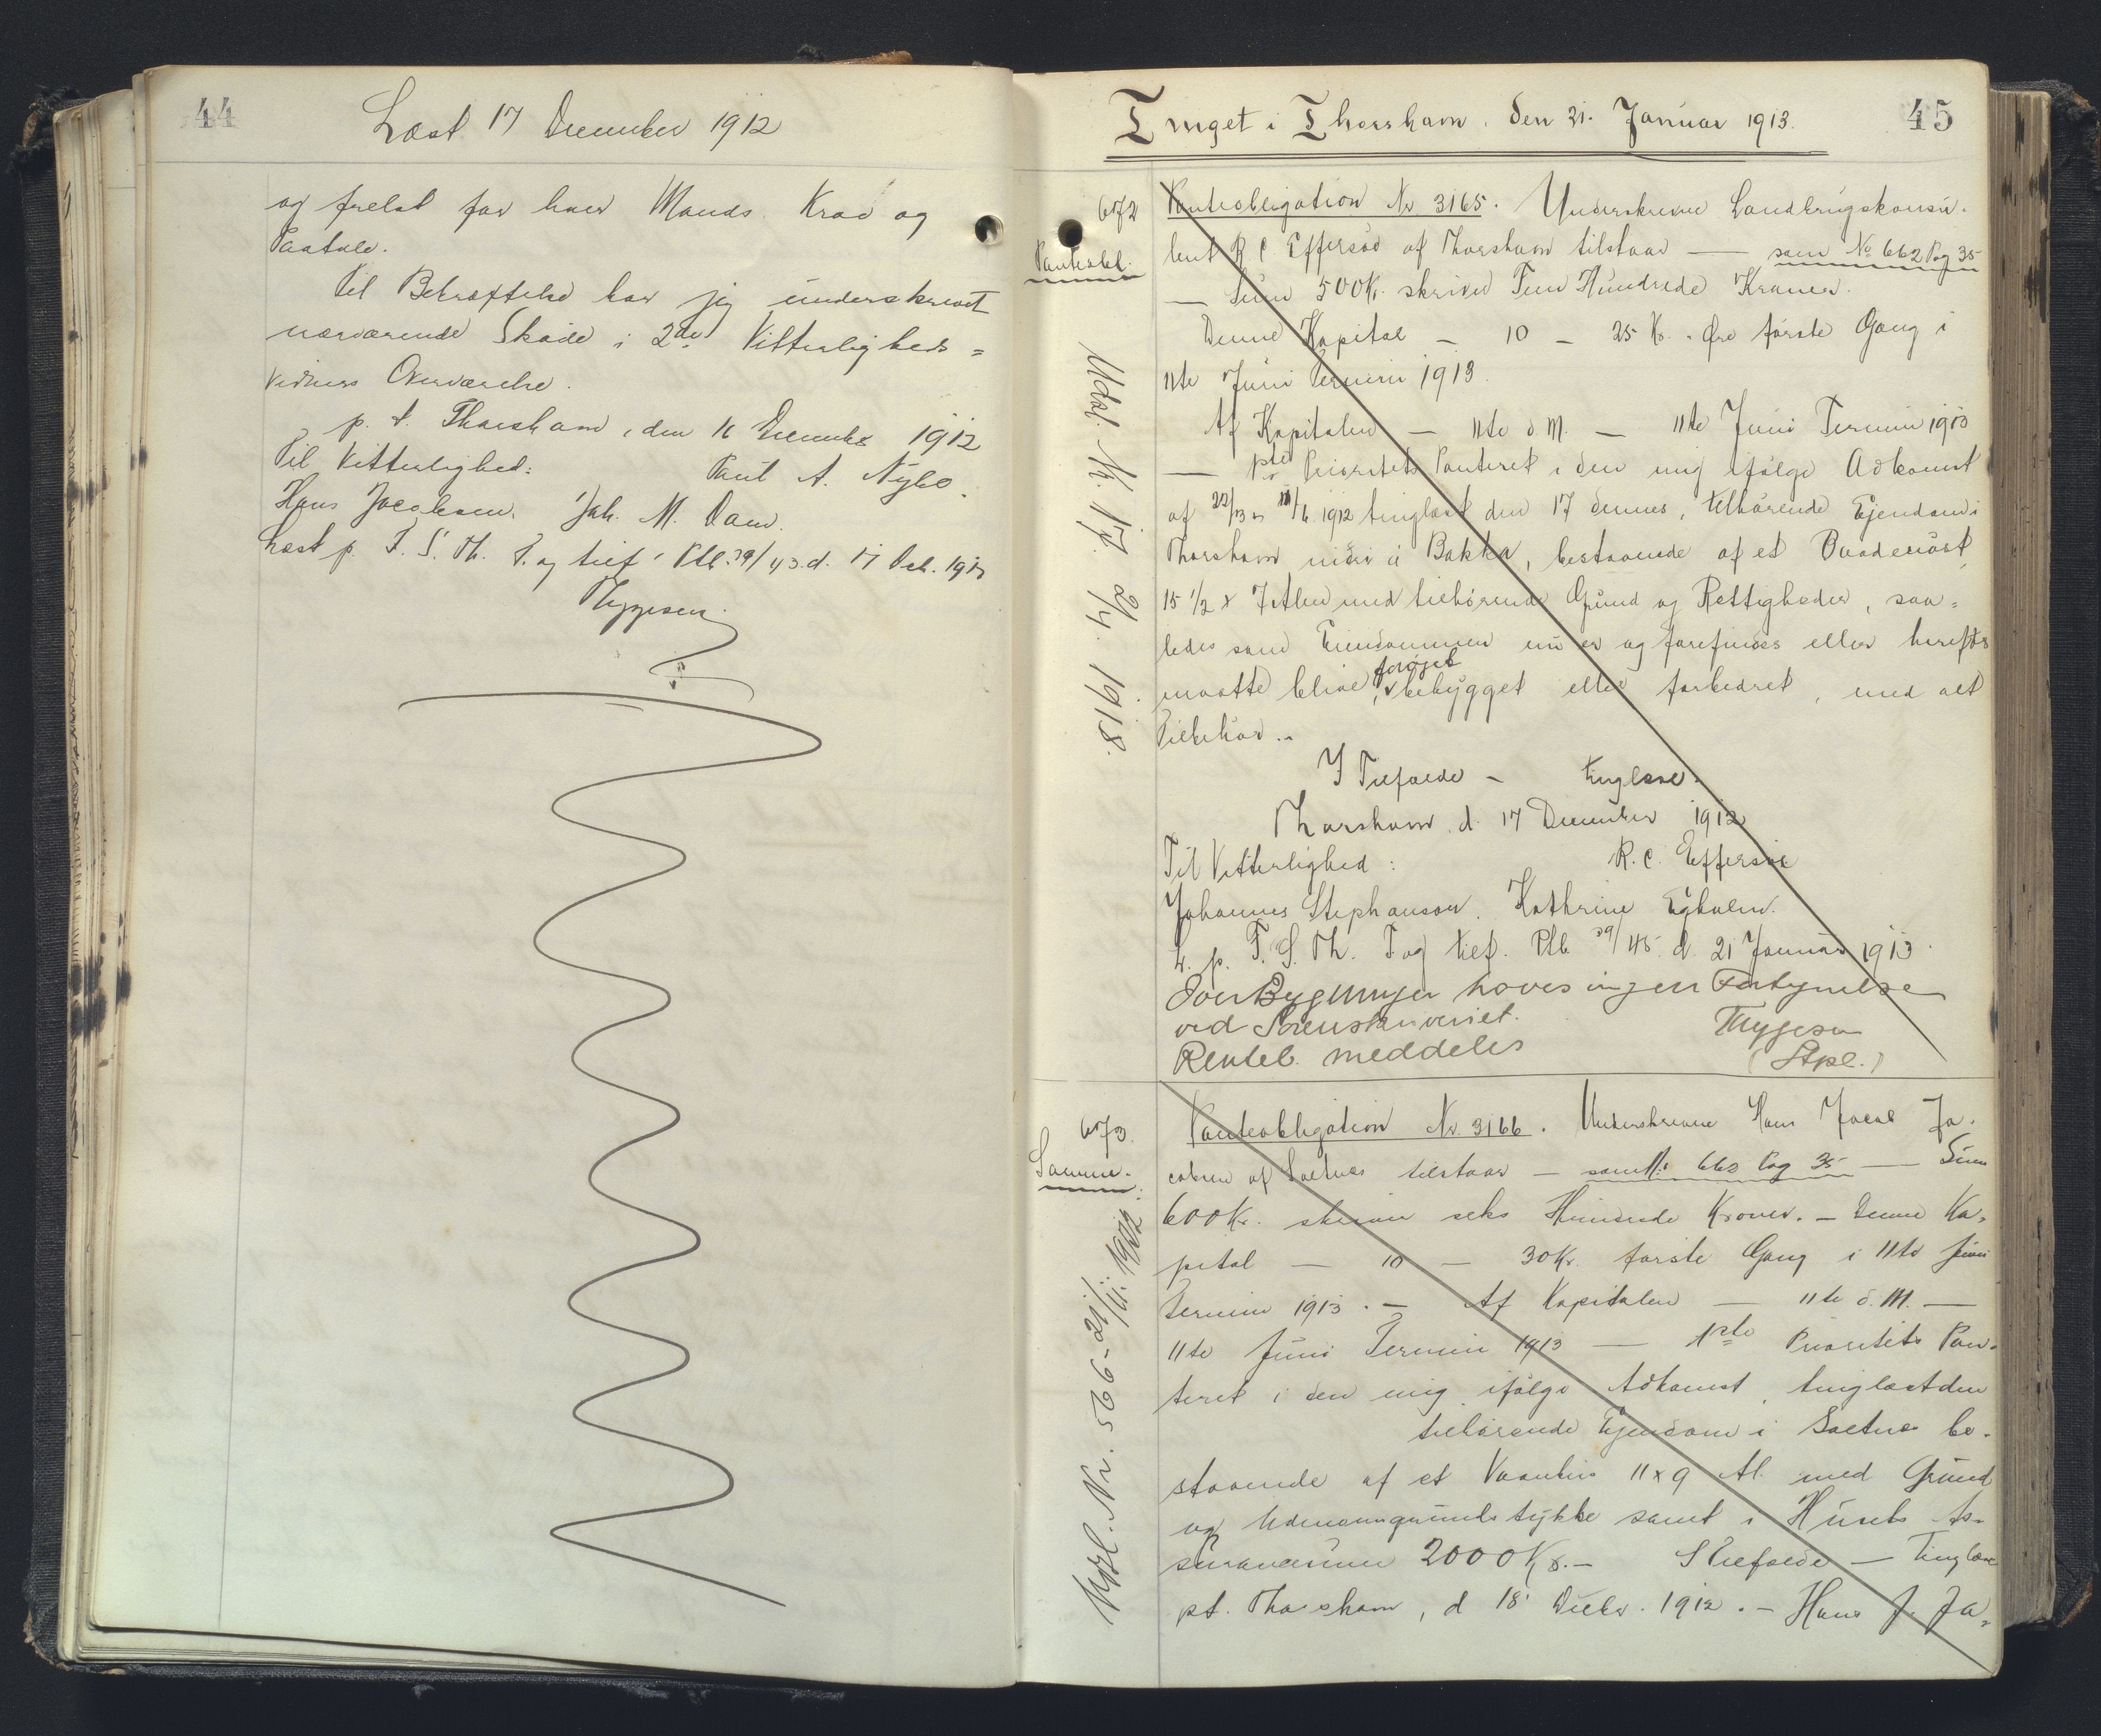 44
Læst 17 December 1912
og frelst for hver Mands Krav og
Paatale.
Til Bekræftelse har jeg underskrevet
nærværende Skøde i 2de Vitterligheds=
vidners Overværelse.
p. t. Thorshavn, den 16 December 1912
Til Vitterlighed:
Poul A. Nybo.
Hans Jacobsen. Joh. M. Dam.
Læst p. F. S. Th. T. og tilf. i Ptb. 39/43. d. 17 Dcb. 1912
Thygesen
Tinget i Thorshavn. den 21. Januar 1913.
45
672
Panteobl.
Udsl. Nr. 17. 2/4. 1918.
Panteobligation Nr 3165. Underskrevne Landbrugskonsu-
lent R C Effersøe af Thorshavn tilstaar — som No 662 Pag 35
— Sum 500 Kr. skriver Fem Hundrede Kroner.
Denne Kapital — 10 — 25 Kr. Øre første Gang i
11te Juni Termin 1913.
Af Kapitalen — 11te d M. — 11te Juni Termin 1913
— Prioritets Panteret i den mig ifølge Adkomst
af 1912 tinglæst den 17 dennes, tilhørende Ejendom i
Thorshavn niðri á Bakka, bestaaende af et
15 1/2 x 7 Alen med tilhørende Grund og Rettigheder, saa=
ledes som Ejendommen nu er og forefindes eller herefter
maatte blive, forøget bebygget eller forbedret, med alt
Tilbehør..
I Tilfælde — tinglæse.
Thorshavn. d. 17 December 1912
Til Vitterlighed:
R. C. Effersøe
Johannes Stephanson. Kathrine Egholm.
L. p. F. S. Th. T. og tilf. Ptb. 39/45. d. 21 Januar 1913.
Over Bygninger haves ingen Fortegnelse
ved Sorenskriveriet.
Thygesen
Renteb. meddeles
(Stpl.)
673.
Samme.
Udsl. Nr. 566 - 21/11. 1922
Panteobligation Nr. 3166. Underskrevne Hans Jacob Ja-
cobsen af Saltnes tilstaar — som No 662 Pag 35 — Sum
600 Kr. skriver seks Hundrede Kroner. — Denne Ka-
pital — 10 — 30 Kr. første Gang i 11te Juni
Termin 1913. — Af Kapitalen — 11te d. M. —
11te Juni Termin 1913 — 1ste Prioritets Pan-
teret i den mig ifølge Adkomst, tinglæst den
tilhørende Ejendom i Saltnes be-
staaende af et Vaanhus 11 x 9 Al. med Grund
og Udmarksgrundstykke samt i Husets As-
surancesum 2000 Kr. — I Tilfælde — Tinglæse
pt. Thorshavn, d 18' Decbr. 1912. — Hans J. Ja-